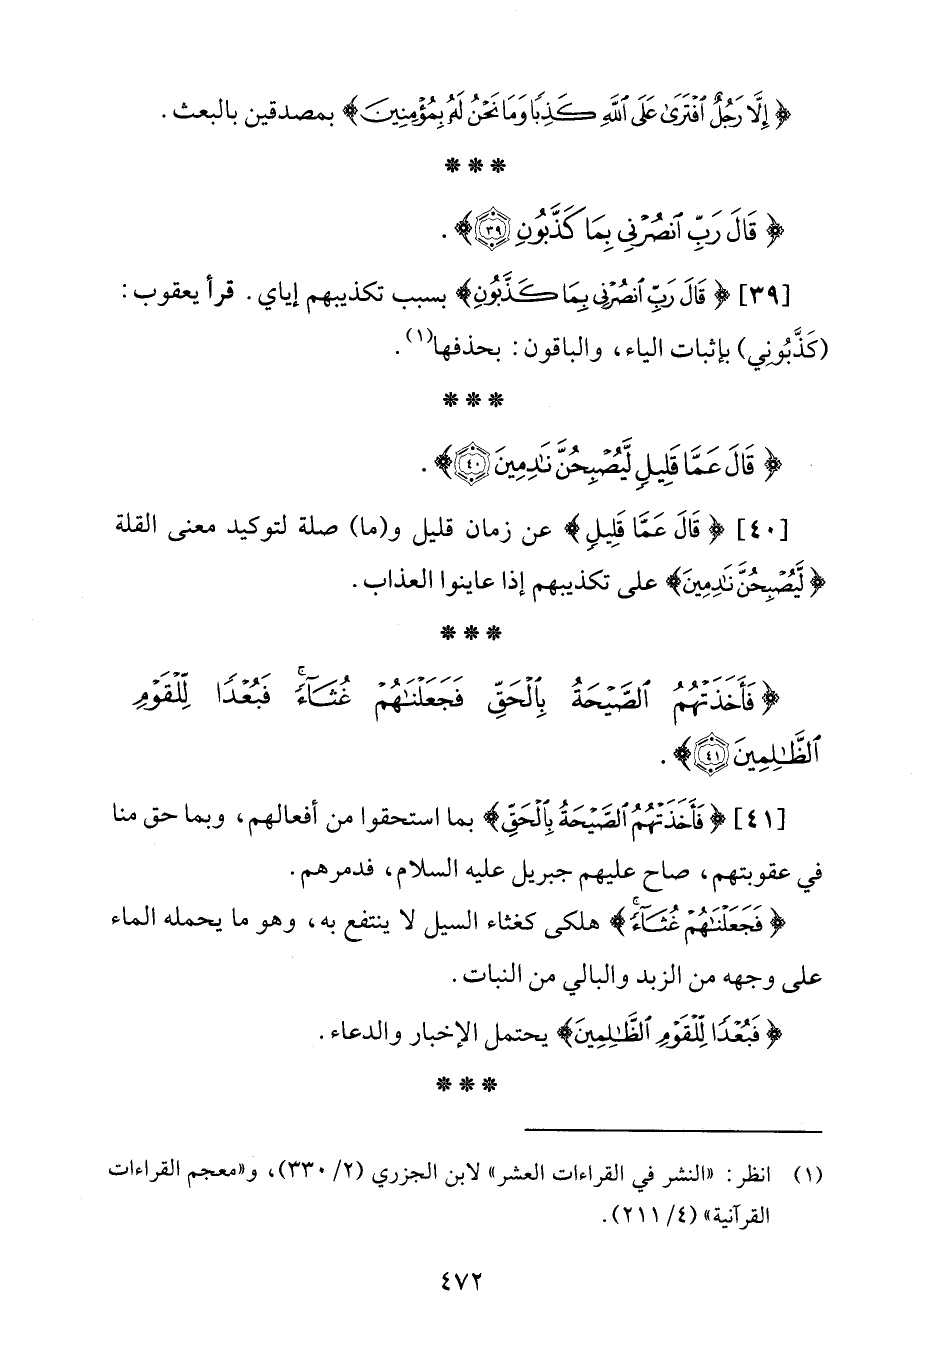 ﴿ إِلَّا رَجُلٌ ٱفْتَرَىٰ عَلَى ٱللَّهِ كَذِبًا وَمَا نَحْنُ لَهُۥ بِمُؤْمِنِينَ ﴾ بمصدقين بالبعث .
***
﴿ قَالَ رَبِّ ٱنصُرْنِى بِمَا كَذَّبُونِ ٣٩ ﴾ .
[٣٩] ﴿ قَالَ رَبِّ ٱنصُرْنِى بِمَا كَذَّبُونِ ﴾ بسبب تكذيبهم إياي . قرأ يعقوب :
(كَذَّبُونِي) بإثبات الياء، والباقون : بحذفها(١) .
***
﴿ قَالَ عَمَّا قَلِيلٍ لَّيُصْبِحُنَّ نَـٰدِمِينَ ٤٠ ﴾ .
[٤٠] ﴿ قَالَ عَمَّا قَلِيلٍ ﴾ عن زمان قليل و(ما) صلة لتوكيد معنى القلة
﴿ لَّيُصْبِحُنَّ نَـٰدِمِينَ ﴾ على تكذيبهم إذا عاينوا العذاب .
***
﴿ فَأَخَذَتْهُمُ ٱلصَّيْحَةُ بِٱلْحَقِّ فَجَعَلْنَـٰهُمْ غُثَآءً ۚ فَبُعْدًا لِّلْقَوْمِ
ٱلظَّـٰلِمِينَ ٤١ ﴾ .
[٤١] ﴿ فَأَخَذَتْهُمُ ٱلصَّيْحَةُ بِٱلْحَقِّ ﴾ بما استحقوا من أفعالهم، وبما حق منا
في عقوبتهم، صاح عليهم جبريل عليه السلام، فدمرهم .
﴿ فَجَعَلْنَـٰهُمْ غُثَآءً ۚ ﴾ هلكى كغثاء السيل لا ينتفع به، وهو ما يحمله الماء
على وجهه من الزبد والبالي من النبات .
﴿ فَبُعْدًا لِّلْقَوْمِ ٱلظَّـٰلِمِينَ ﴾ يحتمل الإخبار والدعاء .
***
(١) انظر : «النشر في القراءات العشر» لابن الجزري (٢/ ٣٣٠)، و«معجم القراءات
القرآنية» (٤/ ٢١١) .
٤٧٢